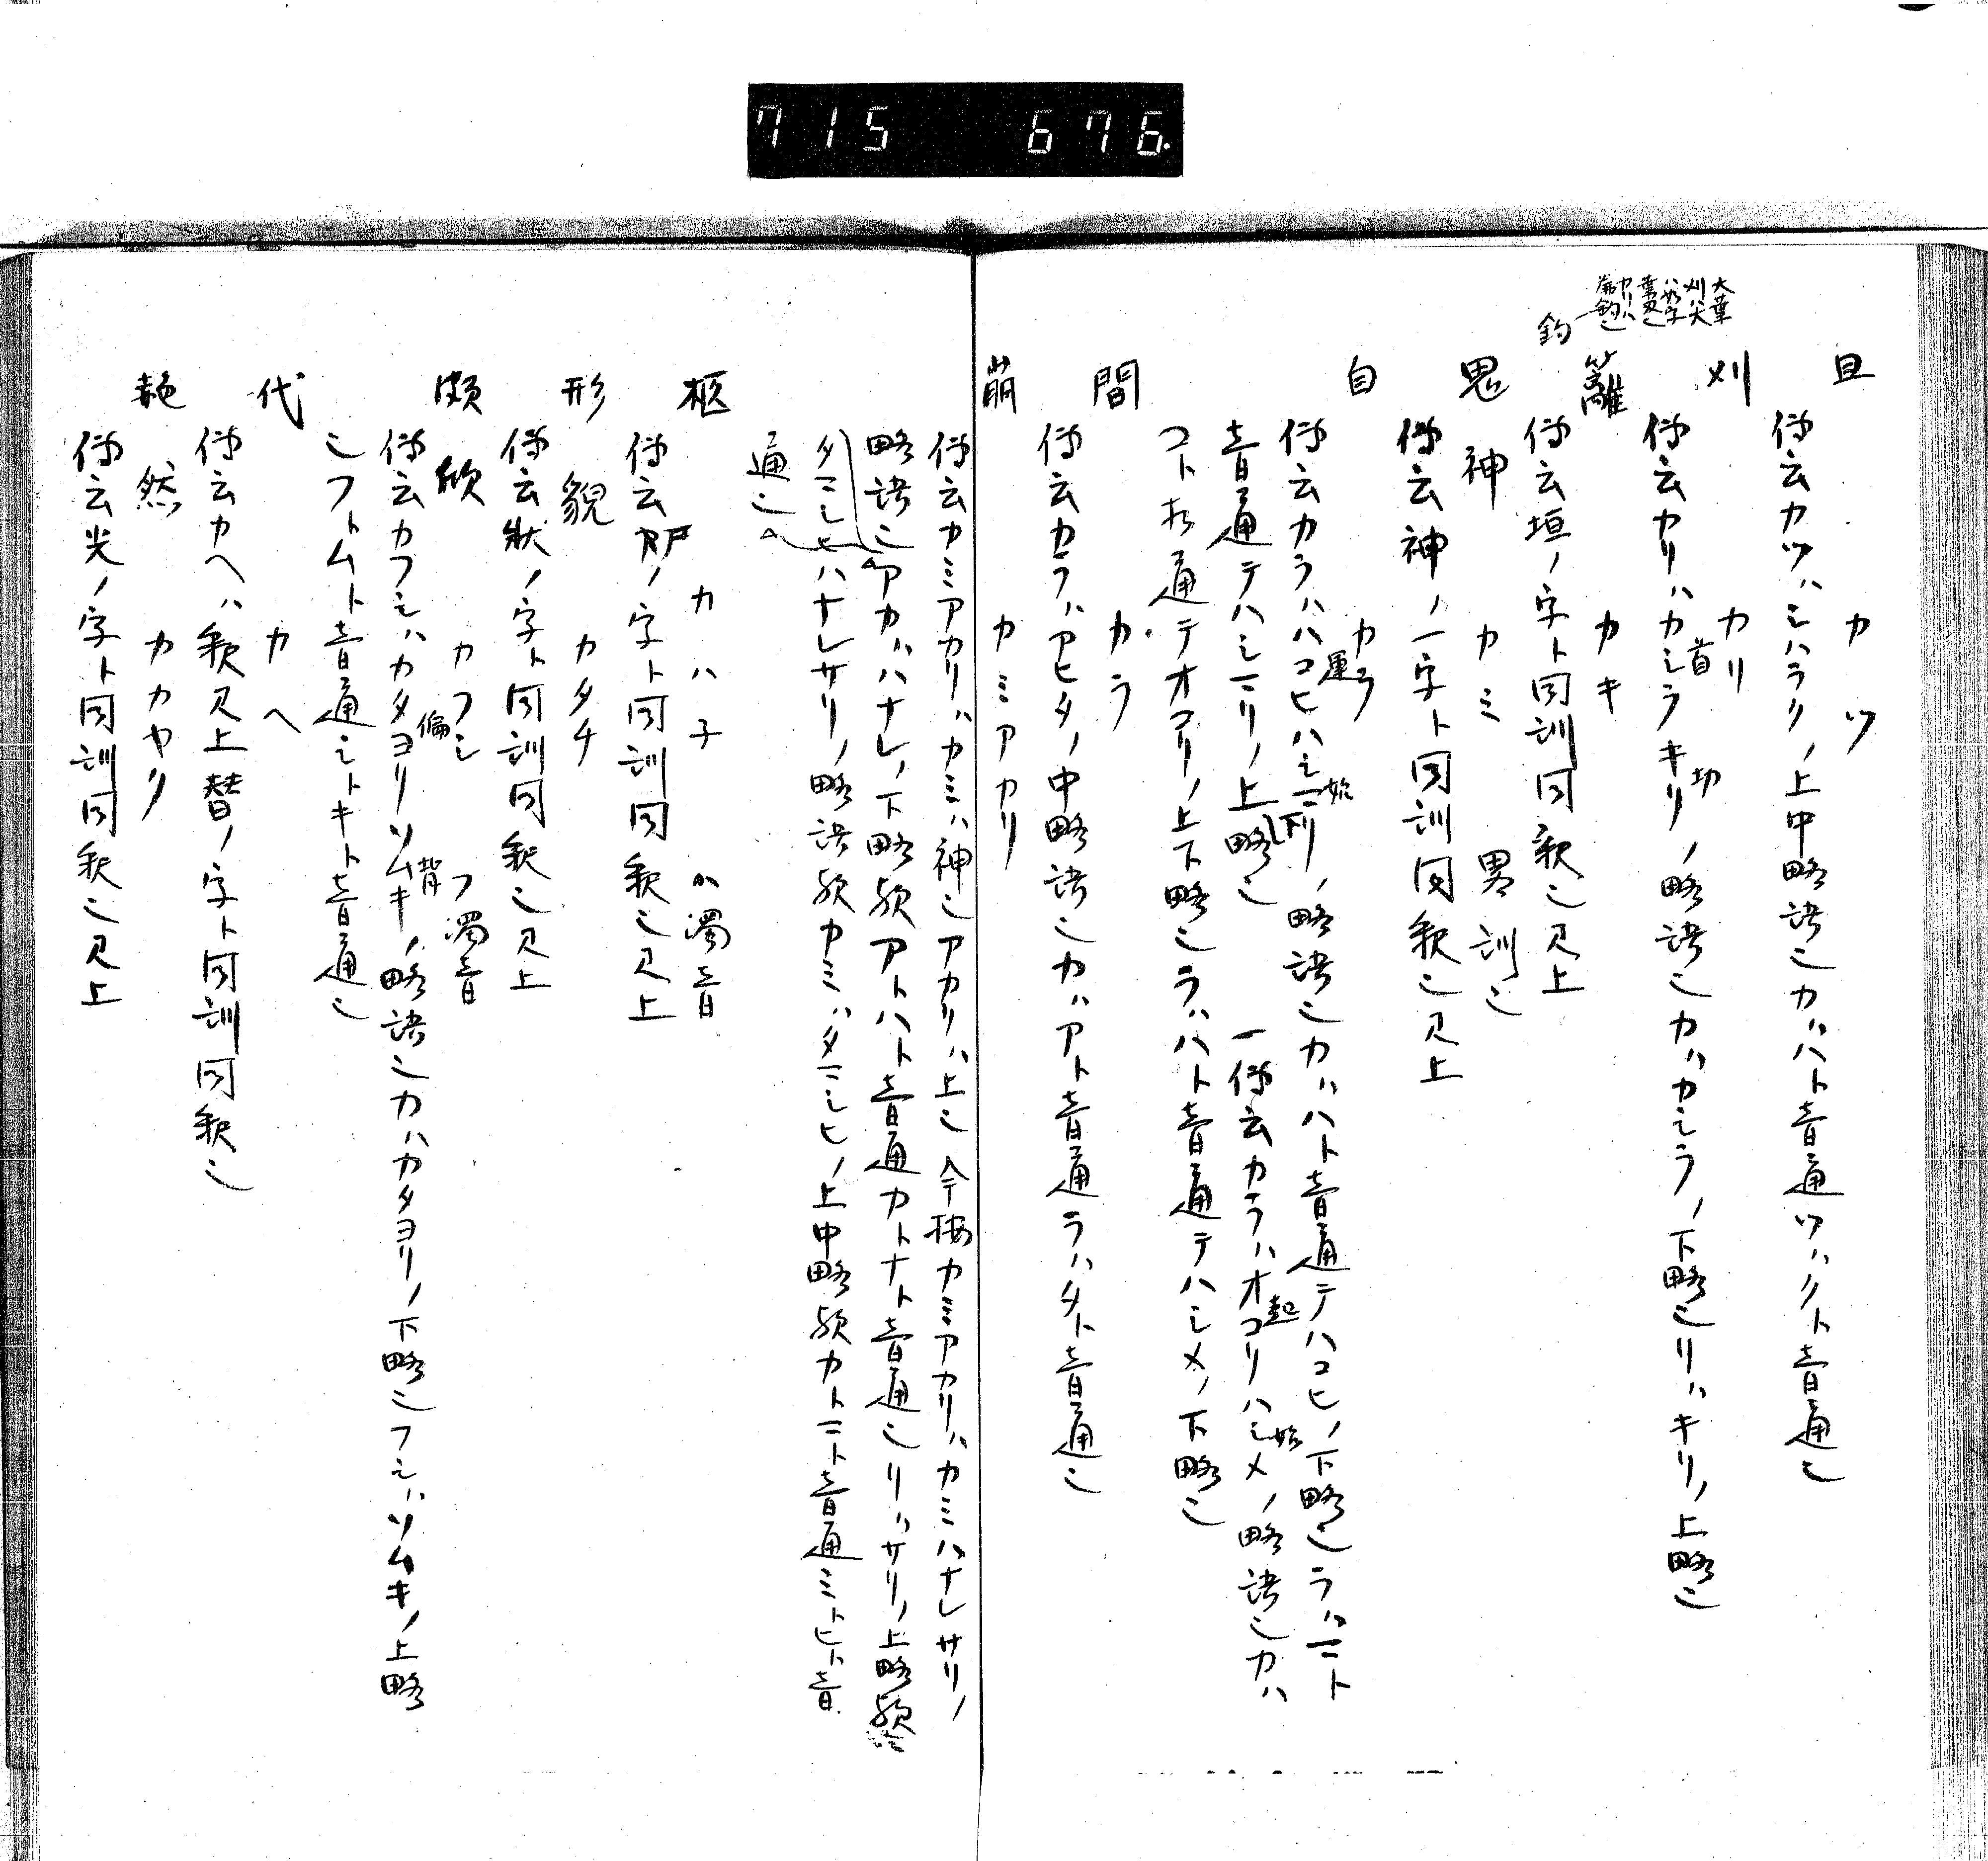 715 676.
大葉
刈ハ大
ハカリ字
葉刈之
カリハ
釣也
釣
且 カツ
伝云カツハシハラクノ上中略語也カハハト音通ツハクト音通也
刈 カリ
伝云カリハカシラ首キリ切ノ略語也カハカシラノ下略也リハキリノ上略也
籬 カキ
伝云垣ノ字ト同訓同釈也見上
鬼神 カミ 男訓也
伝云神ノ一字ト同訓同釈也見上
自 カラ
伝云カラハハコヒ運ハシマリ始ノ下略語也カハハト音通テハコヒノ下略也ラハニト
音通テハシマリノ上略也 一伝云カラハオコリ起ハシメ始ノ略語也カハ
コトオ通テオコリノ上下略也ラハハト音通テハシメノ下略也
間 カラ
伝云カラハアヒタノ中略語也カハアト音通ラハタト音通也
崩 カミアカリ
伝云カミアカリハカミハ神也アカリハ上也 今按カミアカリハカミハナレサリノ
略語也アカハハナレノ下略歟アトハト音通カトナト音通也リハサリノ上略歟
タマシヒハナレサリノ略語歟カミハタマシヒノ上中略歟カトニト音通ミトヒト音
通也
柩 カハ子 ハ濁音
伝云尸ノ字ト同訓同釈也見上
形貌 カタチ
伝云状ノ字ト同訓同釈也見上
頗欣 カフシ フ濁音
伝云カフシハカタヨリ偏ソムキ背ノ略語也カハカタヨリノ下略也フシハソムキノ上略
也フトムト音通シトキト音通也
代 カヘ
伝云カヘハ釈見上替ノ字ト同訓同釈也
赩然 カカヤク
伝云光ノ字ト同訓同釈也見上